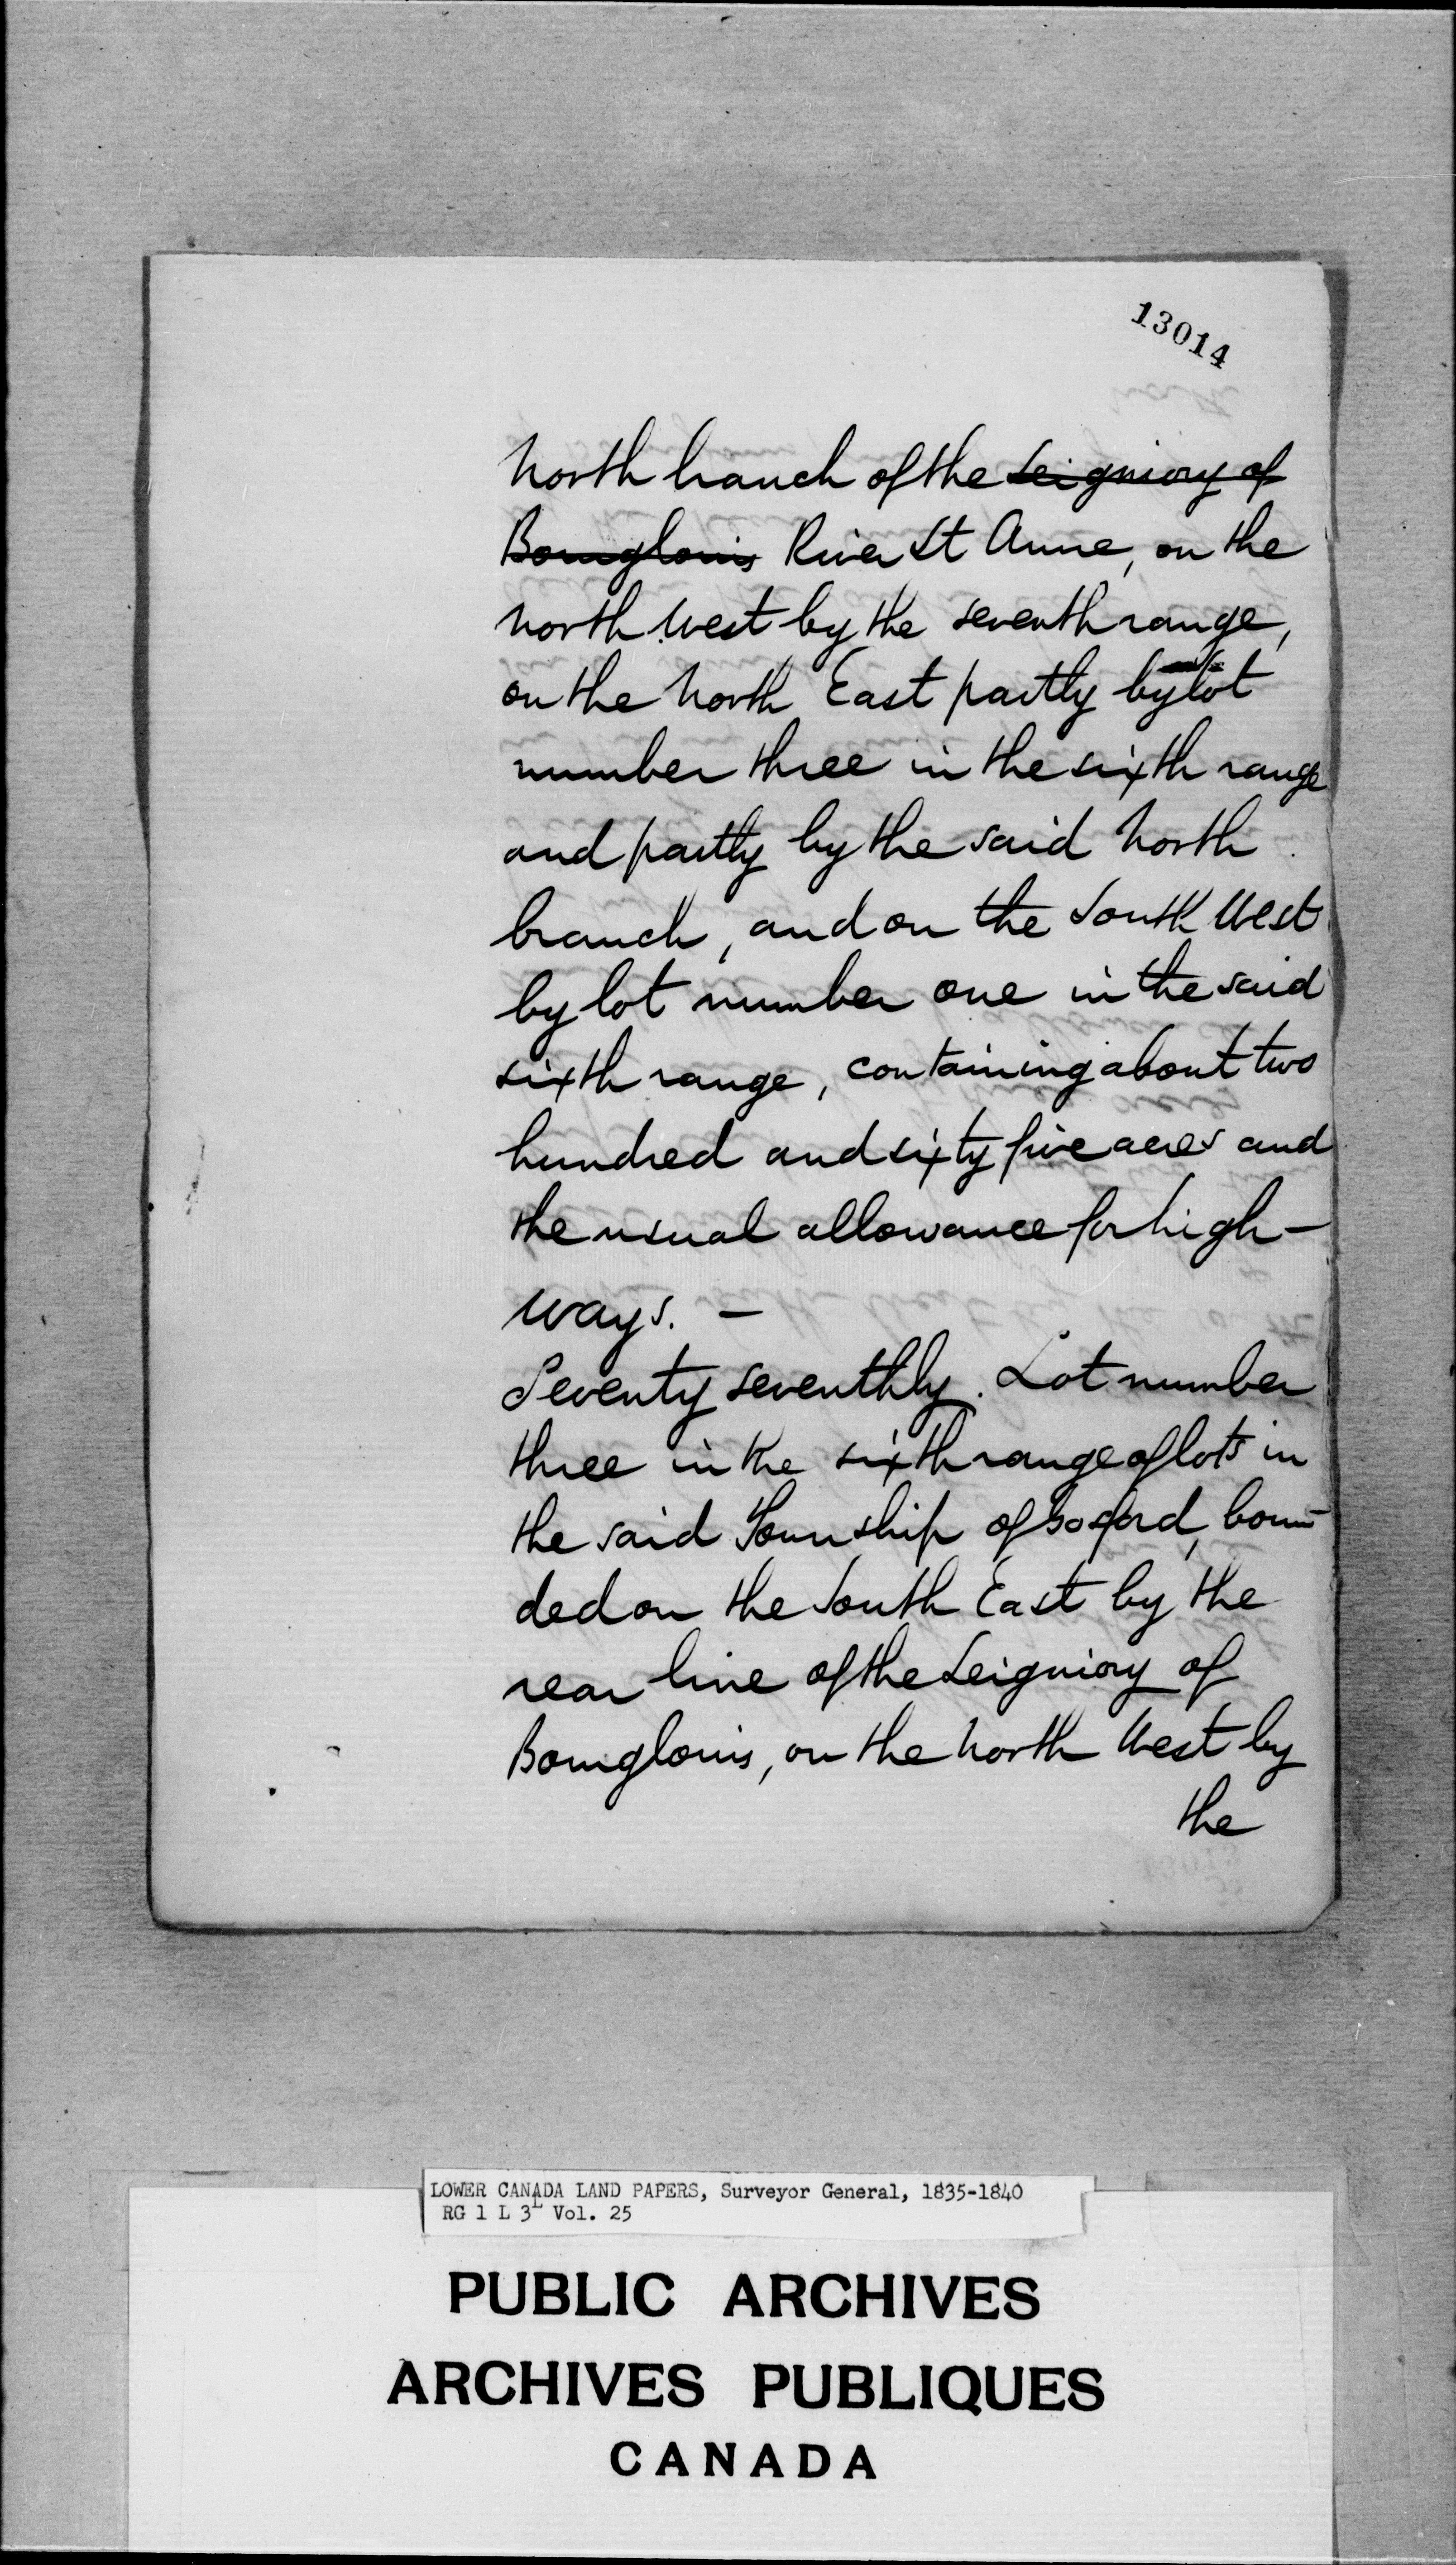 13014
North branch of the Seigniory of
Bourglouis River St Anne, on the
North West by the seventh range,
on the North East partly by lot
number three in the sixth range
and partly by the said North
branch, and on the South West
by lot number one in the said
sixth range, containing about two
hundred and sixty five acres and
the usual allowance for high-
ways. -
Seventy seventhly. Lot number
three in the sixth range of lots in
the said Township of Gosford, boun-
ded on the South East by the
rear line of the Seigniory of
Bourglouis, on the North West by
the
LOWER CANADA LAND PAPERS, Surveyor General, 1835-1840
RG 1 L 3L Vol. 25
PUBLIC ARCHIVES
ARCHIVES PUBLIQUES
CANADA